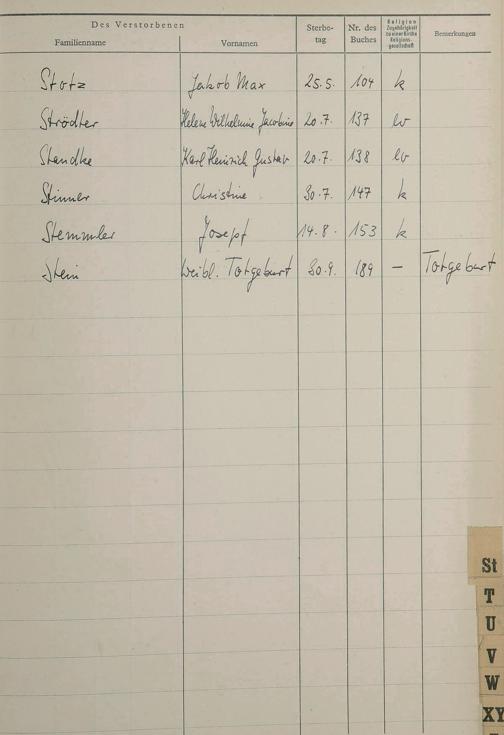 Des Verstorbenen
Familienname Vornamen Sterbe-tag Nr. des Buches Religion Zugehörigkeit zu einer Kirche Religions-gesellschaft Bemerkungen
Stotz Jakob Max 25.5. 104 k
Strödter Helene Wilhelmine Jacobine 20.7. 137 ev
Standke Karl Heinrich Gustav 20.7. 138 ev
Stinner Christine 30.7. 147 k
Stemmler Josef 14.8. 153 k
Stein Weibl. Totgeburt 30.9. 189 – Totgeburt
St
T
U
V
W
XY